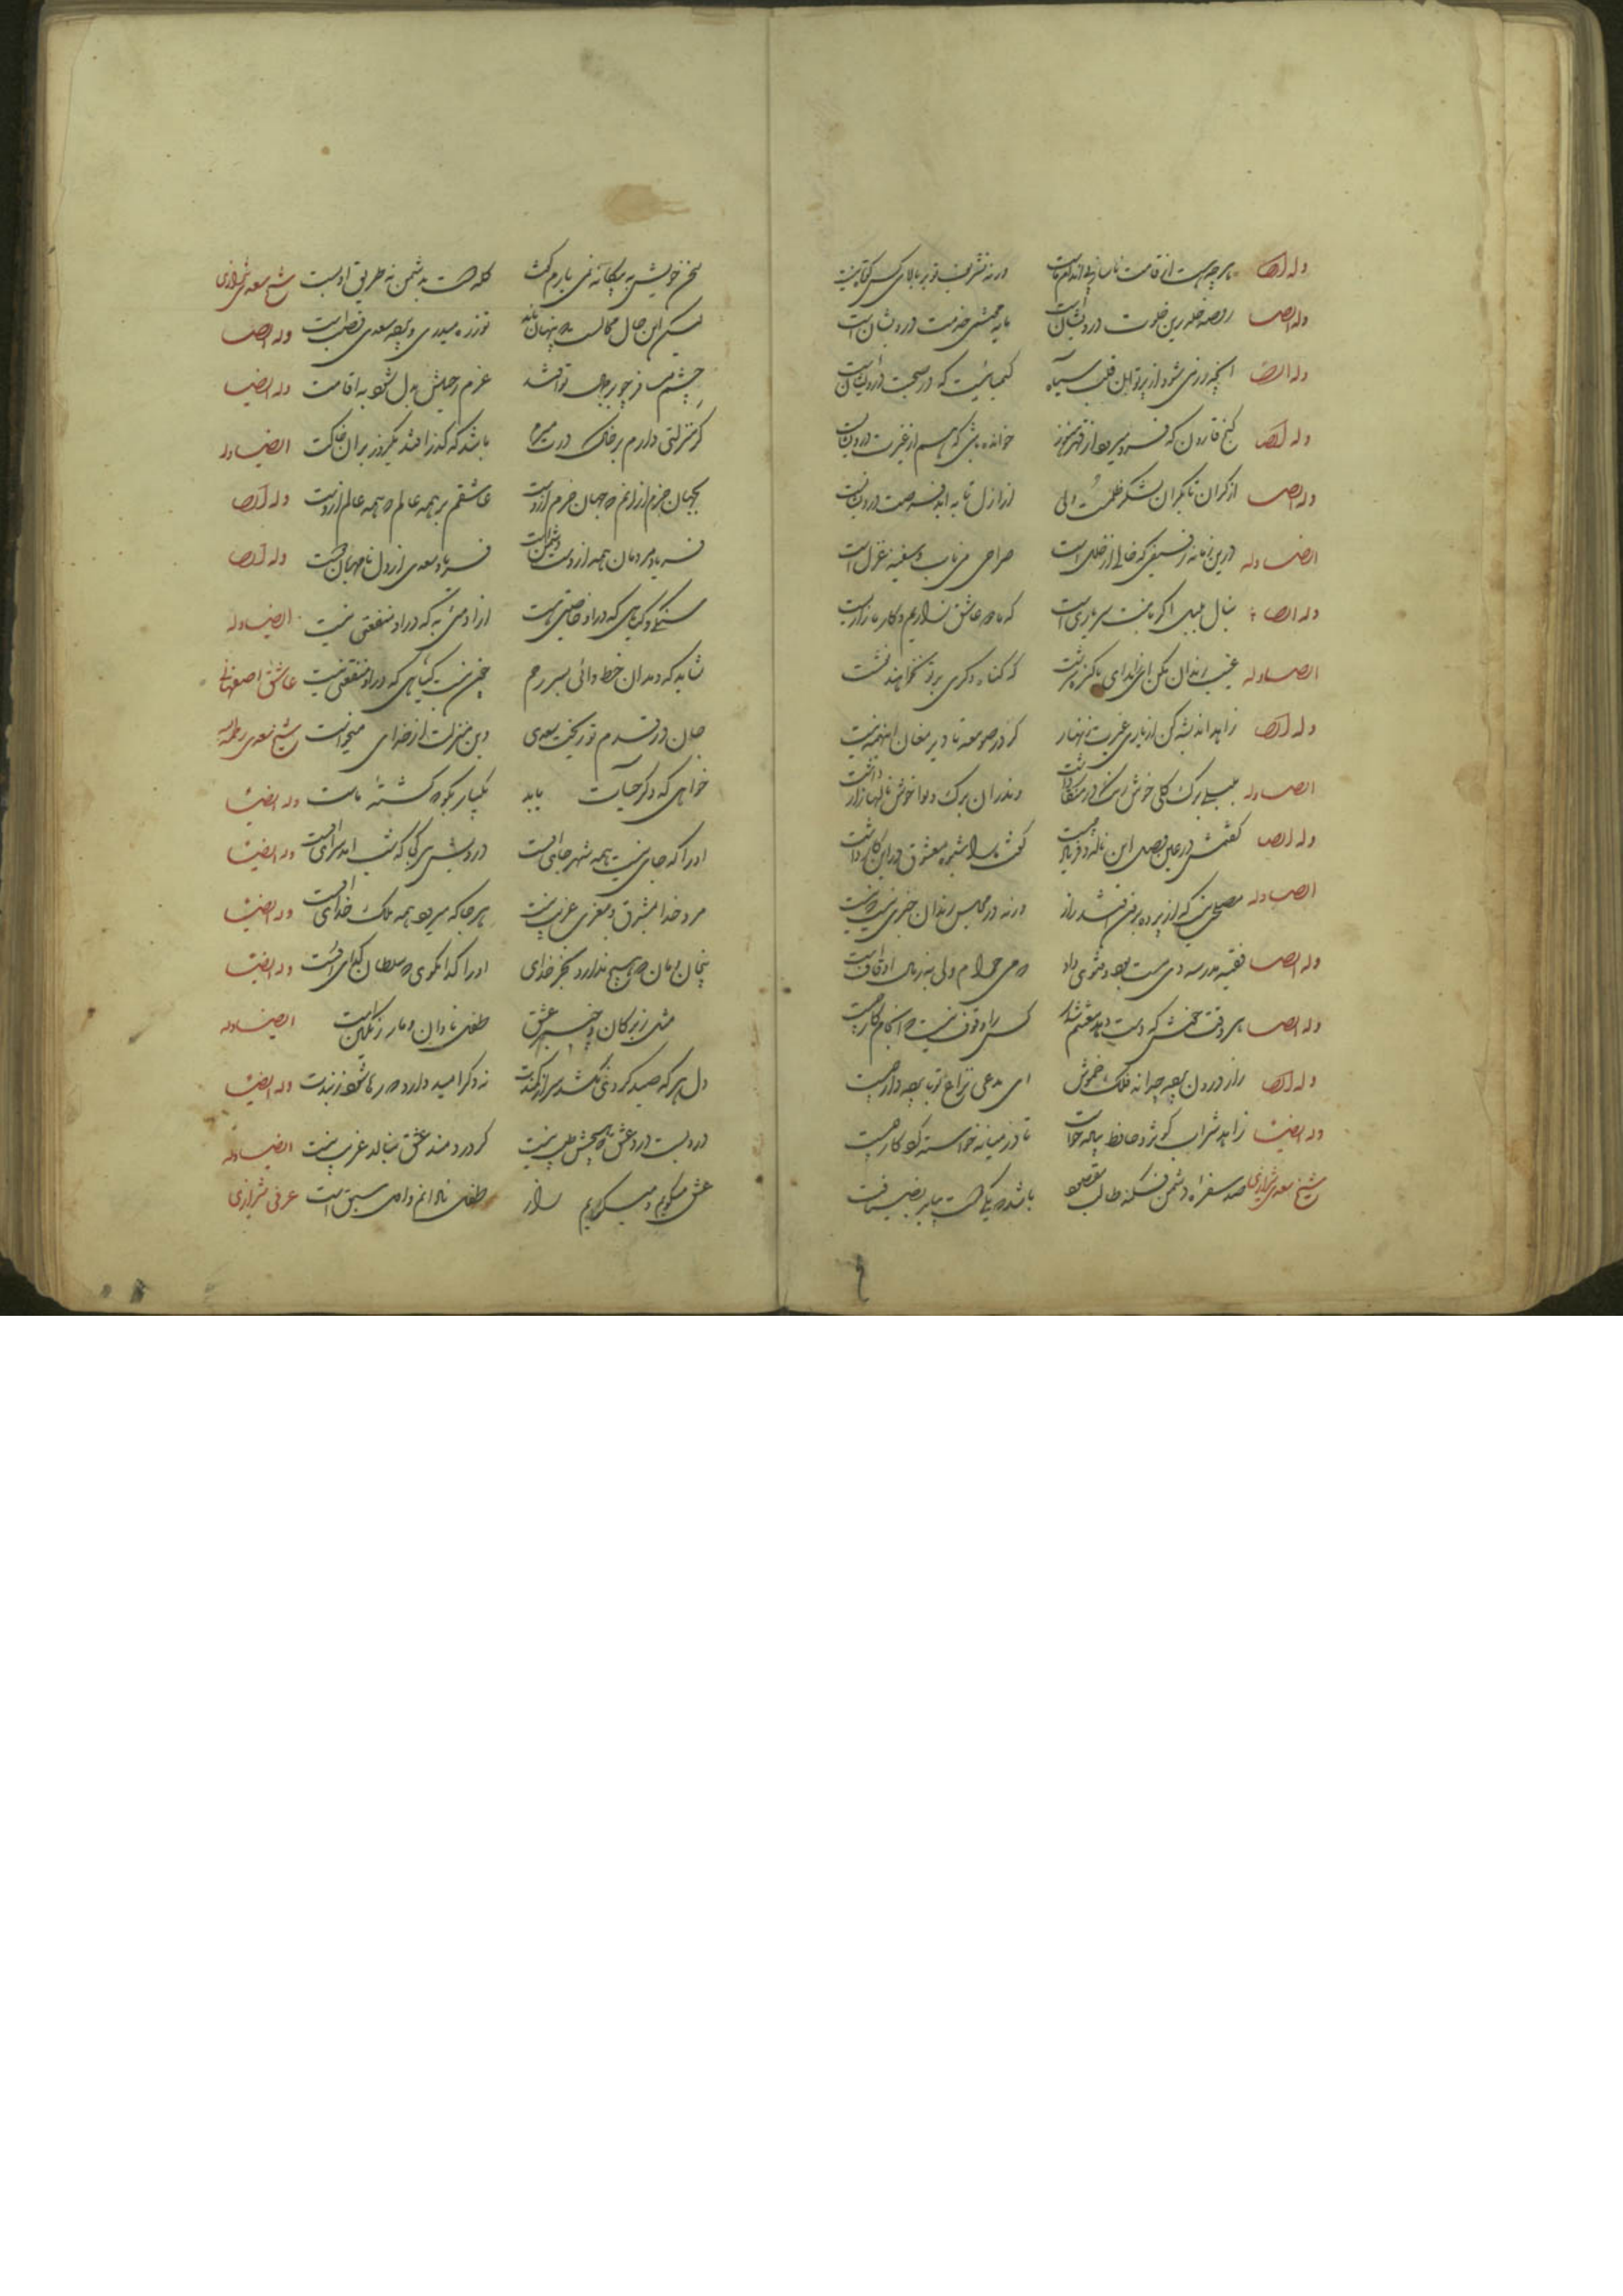 وله ایضا هر چه هست از قامت ناساز بی اندام ماست ورنه تشریف تو بر بالای کس کوتاه نیست
وله ایضا روضه خلد برین خلوت درویشان است مایه محتشمی خدمت درویشان است
وله ایضا آنچه زر می شود از پرتو آن قلب سیاه کیمیائیست که در صحبت درویشان است
وله ایضا گنج قارون که فرو میرود از قهر هنوز خوانده باشی که هم از غیرت درویشان است
وله ایضا از کران تا بکران لشکر ظلمست ولی از ازل تا به ابد فرصت درویشان است
ایضا وله درین زمانه رفیقی که خالی از خلل است صراحی می ناب و سفینه غزل است
وله ایضا بنال بلبل اگر با منت سر یاری است که ما دو عاشق زاریم و کار ما زاری است
ایضا وله عیب رندان مکن ای زاهد پاکیزه سرشت که گناه دگری بر تو نخواهند نوشت
وله ایضا زاهد اندیشه کن از بازی غیرت زنهار که ز صومعه تا دیر مغان اینهمه نیست
ایضا وله بلبلی برگ گلی خوش رنگ در منقار داشت و اندران برگ و نوا خوش نالهای زار داشت
وله ایضا گفتمش در عین وصل این ناله و فریاد چیست گفت ما را جلوه معشوق در این کار داشت
ایضا وله مصلحت نیست که از پرده برون افتد راز ورنه در مجلس رندان خبری نیست که نیست
وله ایضا فقیه مدرسه دی مست بود و فتوی داد که می حرام ولی به ز مال اوقاف است
وله ایضا هر وقت خوش که دست دهد مغتنم شمار کس را وقوف نیست که انجام کار چیست
وله ایضا راز درون پرده چه داند فلک خموش ای مدعی نزاع تو با پرده دار چیست
وله ایضا زاهد شراب کوثر و حافظ پیاله خواست تا در میانه خواسته کردگار چیست
شیخ سعدی شیرازی صد سفره دشمن فکند طالب مقصود باشد که یکی دوست بیاید بضیافت
سخن خویش به بیگانه نمی یارم گفت گله دوست به دشمن نه طریق ادبست شیخ سعدی شیرازی
لیکن این حال محالست که پنهان ماند تو زره میدری و پرده سعدی قصب است وله ایضا
چشم مسافر چو بر جمال تو افتد عزم رحیلش بدل شود به اقامت وله ایضا
گر منزلتی دارم بر خاک درت میرم باشد که گذر افتد یکروز بر آن خاکت ایضا وله
بجهان خرم از آنم که جهان خرم ازوست عاشقم بر همه عالم که همه عالم ازوست وله ایضا
فریاد مردمان همه از دست دشمن است فریاد سعدی از دل نامهربان دوست وله ایضا
سنگی و گیاهی که در او خاصیتی هست از آدمی به که در او منفعتی نیست ایضا وله
عاشق اصفهانی
جان در قدم تو ریخت سعدی وین منزلت از خدای میخواست شیخ سعدی رحمه الله
خواهی که دگر حیات یابد یکبار بگو که کشته ماست وله ایضا
او را که جای نیست همه شهر جای اوست درویش هر کجا که شب آمد سرای اوست وله ایضا
مرد خدا بمشرق و مغرب غریب نیست هر جا که میرود همه ملک خدای اوست وله ایضا
بی خان و مان که هیچ ندارد بجز خدای او را گدا مگوی که سلطان گدای اوست وله ایضا
مثل زیرکان و چنبر عشق طفل نادان و مار رنگین است ایضا وله
دل هر که صید کردی نکشد سر از کمندت نه دگر امید دارد که رها شود ز بندت وله ایضا
دردیست درد عشق که هیچش طبیب نیست گر دردمند عشق بنالد غریب نیست ایضا وله
عشق میگویم و میگریم زار طفل نادانم و اول سبق است عرفی شیرازی